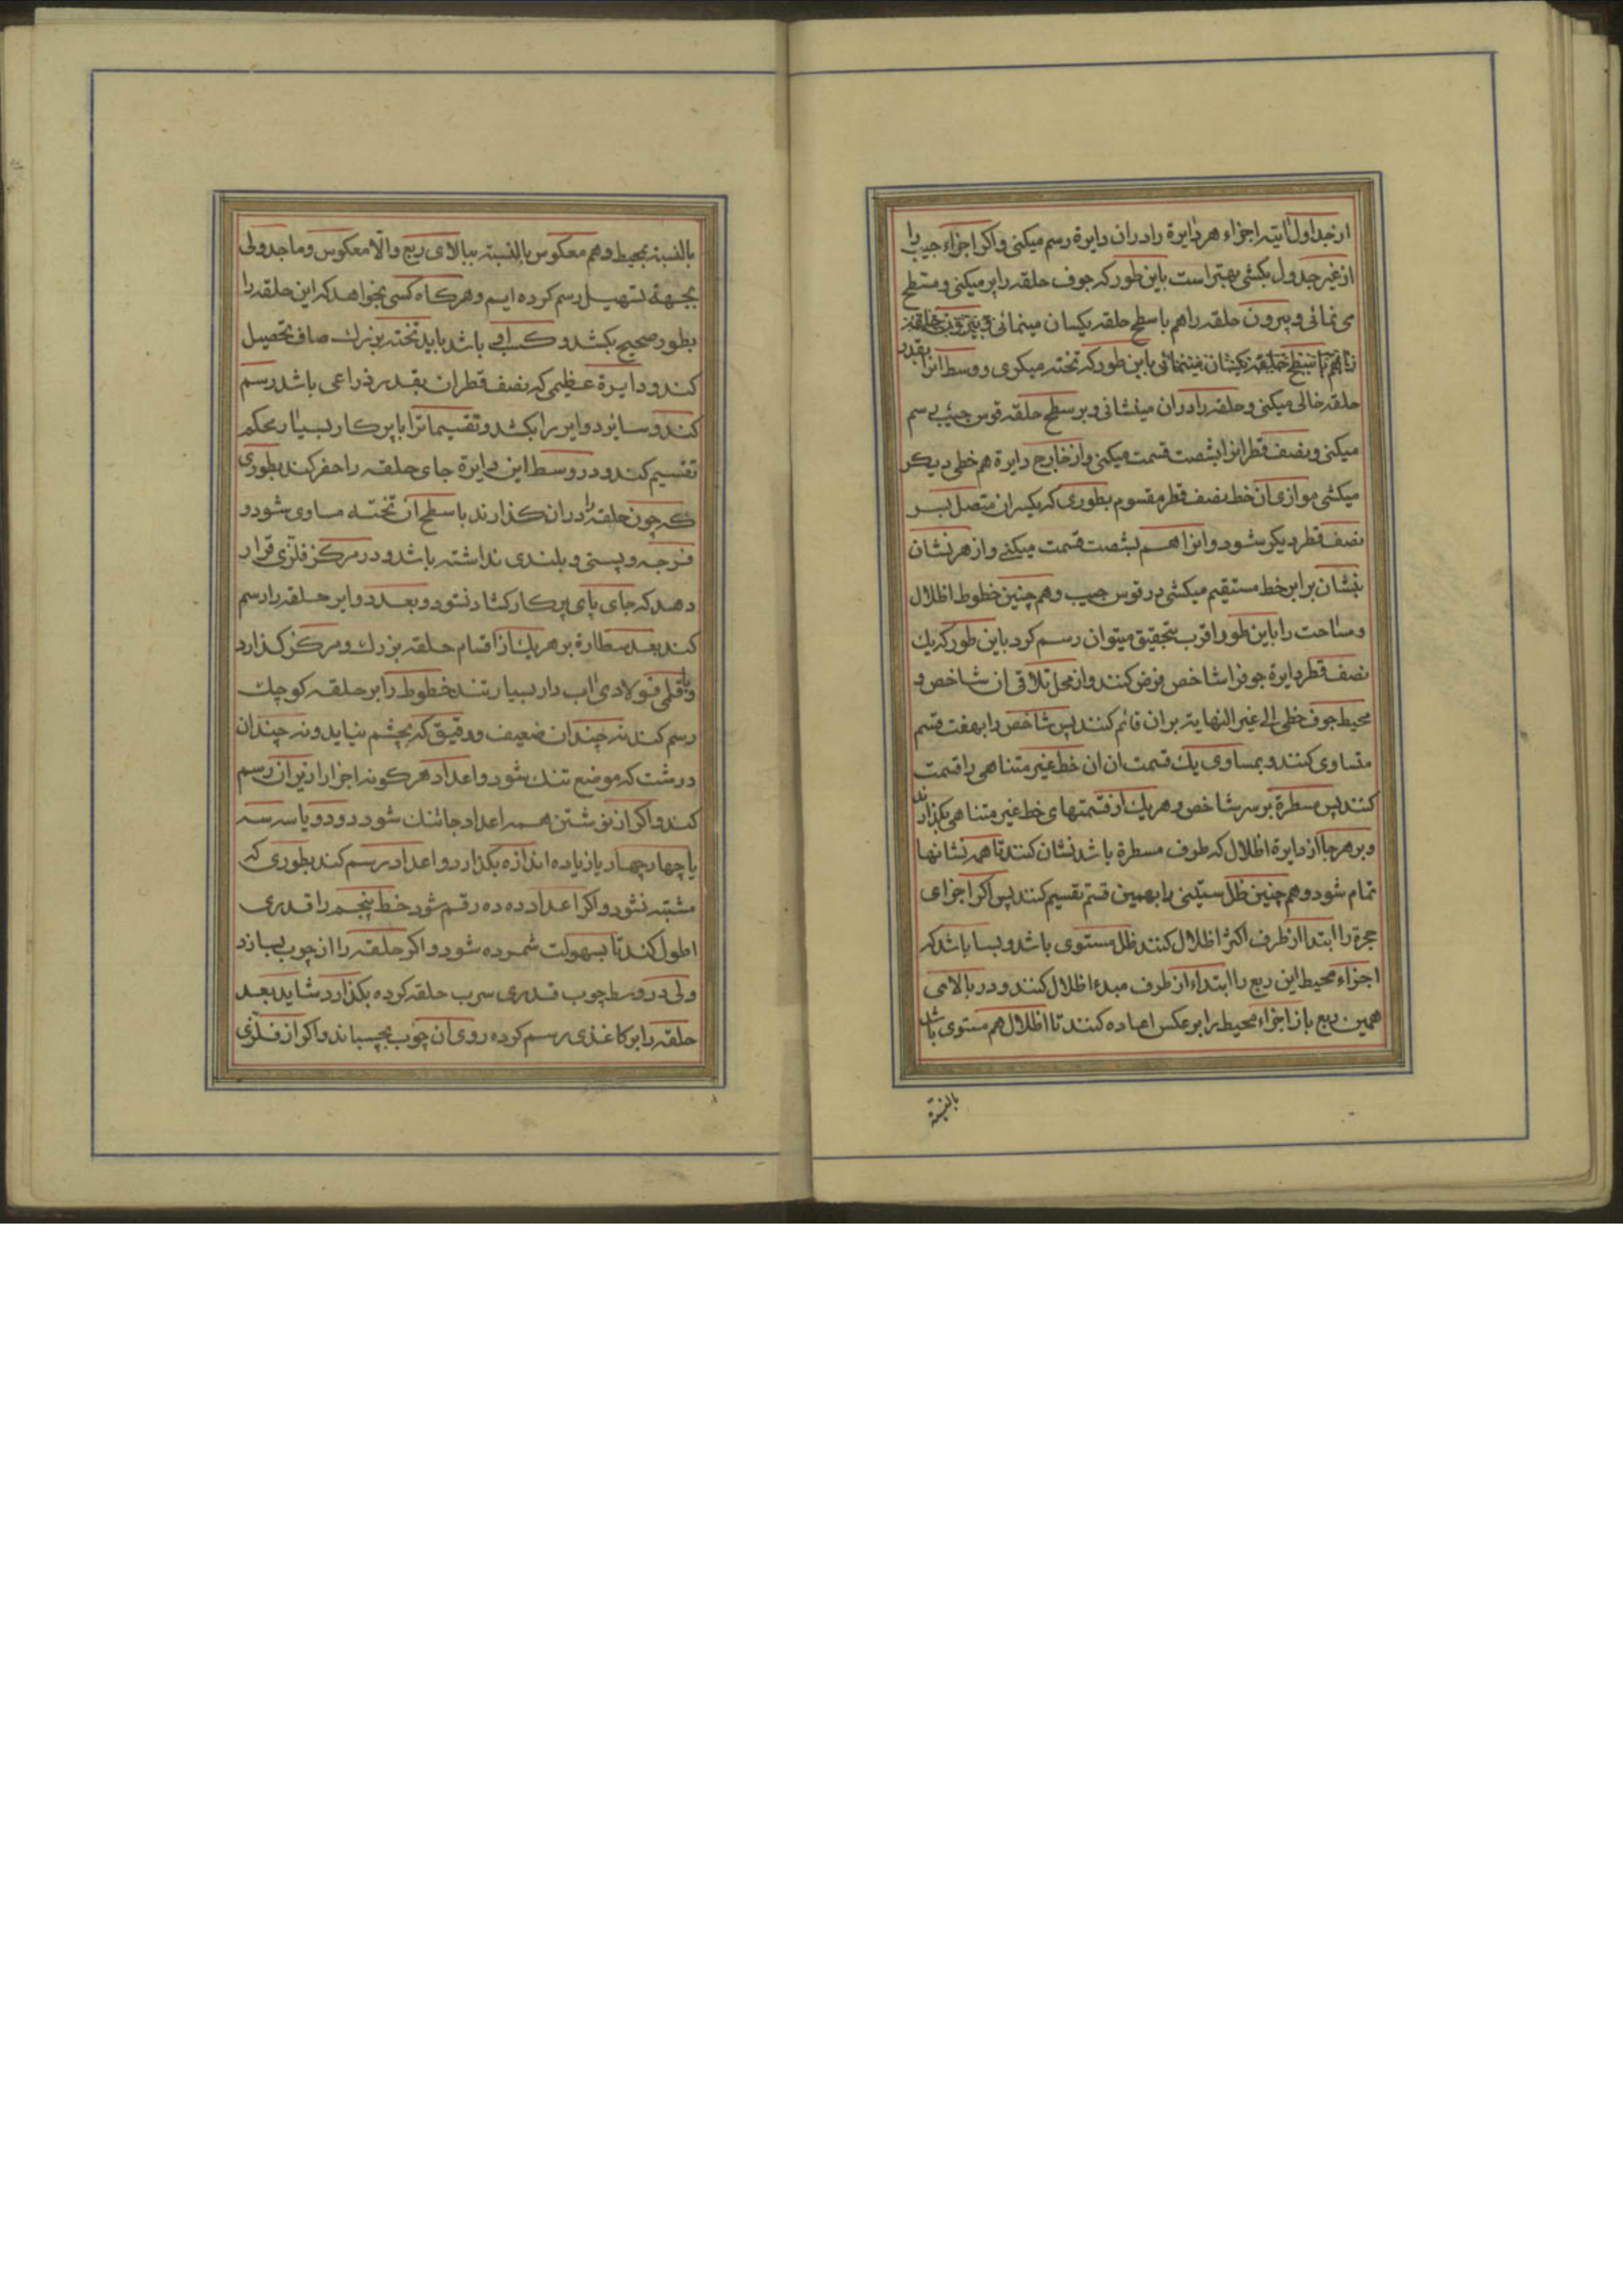 از جداول اتیه اجزاء هر دایرة را در ان دایرة رسم میکنی و اکر اجزاء جیب را
از غیر جدول بکشی بهتر است باین طور که جوف حلقه را پر میکنی و مسطح
می نمائی و بیرون حلقه را هم با سطح حلقه یکسان مینمائی و بیرون حلقه
را هم با سطح حلقه یکسان مینمائی باین طور که تخته میکری و وسط انرا بقدر
حلقه خالی میکنی و حلقه را در ان مینشانی و بر سطح حلقه قوس جیب رسم
میکنی و نصف قطر انرا بشصت قسمت میکنی و از خارج دایرة هم خطی دیکر
میکشی موازی ان خط نصف قطر مقسوم بطوری که یکسر ان متصل بسر
نصف قطر دیکر شود و انرا هم بشصت قسمت میکنے و از هر نشان
بنشان برابر خط مستقیم میکشی در قوس جیب و هم چنین خطوط اظلال
و مساحت را باین طور اقرب بتحقیق میتوان رسم کرد باین طور که یک
نصف قطر دایرة جوف را شاخص فرض کنند و از محل تلاقی ان شاخص و
محیط جوف خطی الی غیر النهایة بر ان قائم کنند پس شاخص را بهفت قسم
متساوی کنند و بمساوی یك قسمت ان ان خط غیر متناهی را قسمت
کنند پس مسطرة بر سر شاخص و هر یك از قسمتهای خط غیر متناهی بکذارند
و بر هر جا از دایرة اظلال که طرف مسطرة باشد نشان کنند تا همه نشانها
تمام شود و هم چنین ظل ستینی را بهمین قسم تقسیم کنند پس اکر اجزای
حجرة را ابتدا از طرف اکثر اظلال کنند ظل مستوی باشد و بسا باشد که
اجزاء محیط این ربع را ابتداء از طرف مبدء اظلال کنند و در بالا می
همین ربع باز اجزاء محیط را بر عکس اعاده کنند تا اظلال هم مستوی باشد
بالنسبة
بالنسبة بمحیط و هم معکوس بالنسبة ببالای ربع والّا معکوس و ما جدولی
بجهة تسهیل رسم کرده ایم و هر کاه کسی بخواهد که این حلقه را
بطور صحیح بکشد و کسرا فی باشد باید تخته بزرك صاف تحصیل
کند و دایرة عظیمی که نصف قطر ان بقدر ذراعی باشد رسم
کند و سایر دوایر را بکشد و تقسیمات را با پرکار بسیار محکم
تقسیم کند و در وسط این دایرة جای حلقه را حفر کند بطوری
که چون حلقه را در ان کذارند با سطح ان تخته مساوی شود و
فرجه و پستی و بلندی نداشته باشد و در مرکز فلزّی قرار
دهد که جای پای پرکار کشاد نشود و بعد دوایر حلقه را رسم
کند بعد سطارة بر هر یك از اقسام حلقه بزرك و مرکز کذارد
و با قلمی فولادی اب دار بسیار تند خطوط را بر حلقه کوچك
رسم کند نه چندان ضعیف و دقیق که بچشم نیاید و نه چندان
درشت که موضع تنك شود و اعداد هر کونه اجزا را زیر ان رسم
کند و اکر از نوشتن همه اعداد جا تنك شود دو دو یا سه سه
یا چهار چهار یا زیاده اندازه بکذارد و اعداد رسم کند بطوری که
مشتبه نشود و اکر اعداد ده ده رقم شود خط پنجم را قدری
اطول کند تا بسهولت شمرده شود و اکر حلقه را از چوب بسازد
ولی در وسط چوب قدری سرب حلقه کرده بکذارد شاید بعد
حلقه را بر کاغذی رسم کرده روی ان چوب بچسباند و اکر از فلزّی